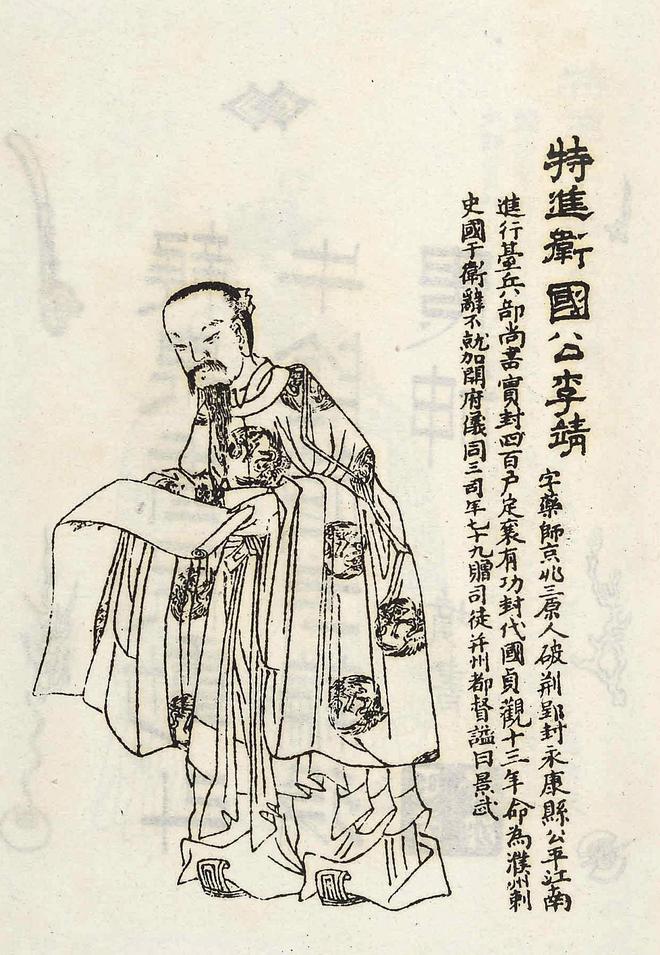 特進衛國公李靖
字藥師京兆三原人破荊郢封永康縣公平江南
進行臺兵部尚書實封四百戶定襄有功封代國貞觀十三年命為濮州刺
史國于衛辭不就加開府儀同三司年七十九贈司徒并州都督謚曰景武